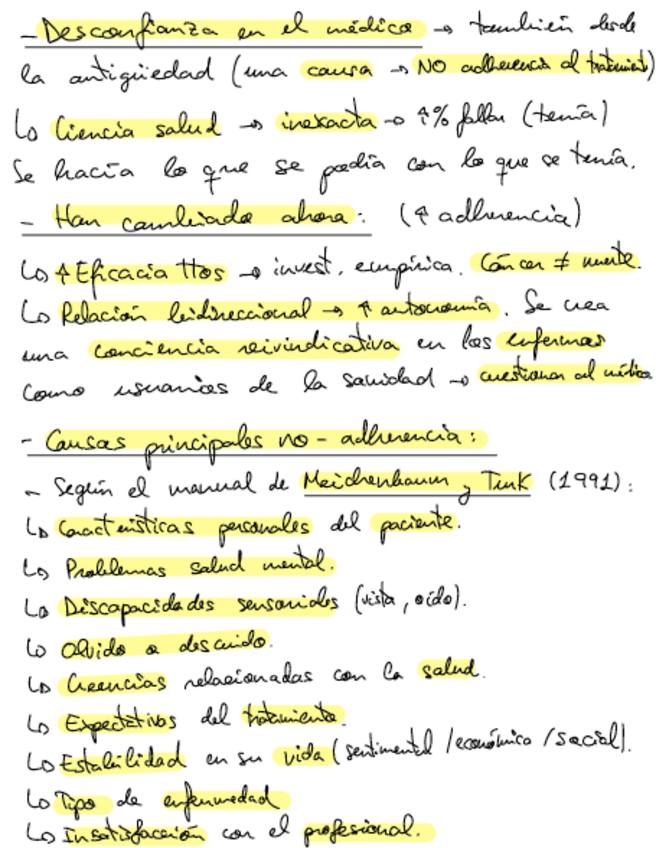 - Desconfianza en el médico → también desde
la antigüedad (una causa → NO adherencia al tratamiento)
↳ Ciencia salud → inexacta → ↑% fallar (tenía)
Se hacía lo que se podía con lo que se tenía.
- Han cambiado ahora: (↑ adherencia)
↳ ↑ Eficacia ttos → invest. empírica. Cáncer ≠ muerte.
↳ Relación bidireccional → ↑ autonomía. Se crea
una conciencia reivindicativa en los enfermos
como usuarios de la sanidad → cuestionar al médico
- Causas principales no-adherencia:
- Según el manual de Meichenbaum y Turk (1991):
↳ Características personales del paciente.
↳ Problemas salud mental.
↳ Discapacidades sensoriales (vista, oído).
↳ Olvido o descuido.
↳ Creencias relacionadas con la salud.
↳ Expectativas del tratamiento.
↳ Estabilidad en su vida (sentimental /económica /social).
↳ Tipo de enfermedad
↳ Insatisfacción con el profesional.